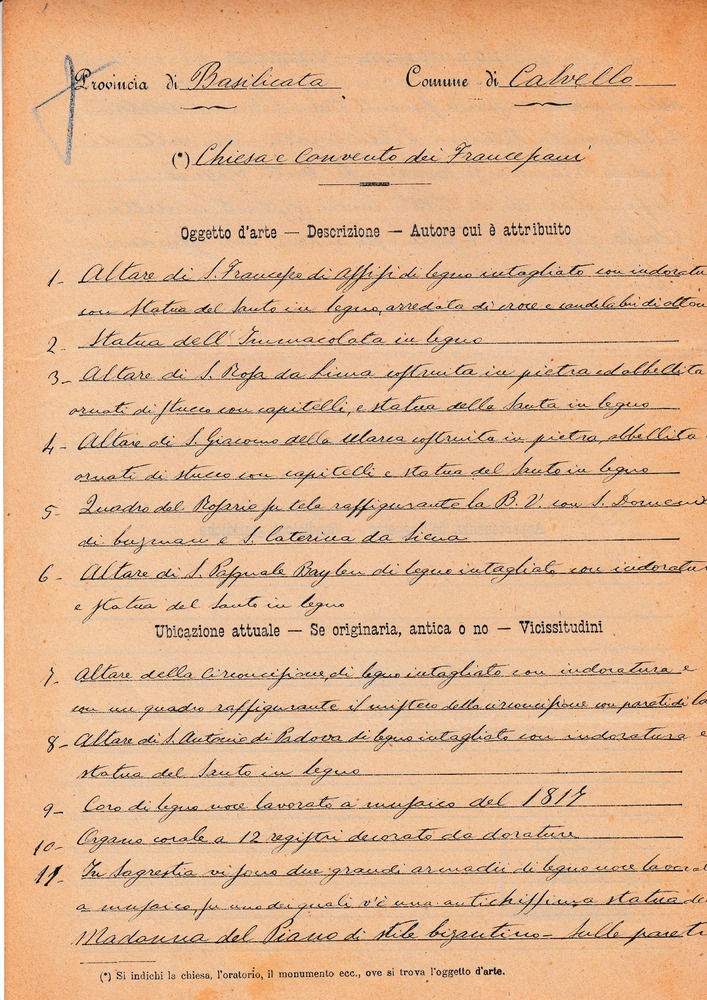 Provincia di Basilicata Comune di Calvello
(*) Chiesa e Convento dei Francescani
Oggetto d'arte — Descrizione — Autore cui è attribuito
1- Altare di S. Francesco di Assisi di legno intagliato con indoratu
con statua del Santo in legno, arredata di croce e candelabri di otton
2- Statua dell'Immacolata in legno
3- Altare di S. Rosa da Lima costruita in pietra ed abbellita
ornati di stucco con capitelli, e statua della Santa in legno
4- Altare di S. Giacomo della Marca costruita in pietra, abbellita
ornati di stucco con capitelli e statua del Santo in legno
5- Quadro del Rosario su tela raffigurante la B. V. con S. Domenic
di buzman e S. Caterina da Siena
6- Altare di S. Pasquale Baylon di legno intagliato con indoratur
e statua del Santo in legno
Ubicazione attuale — Se originaria, antica o no — Vicissitudini
7- Altare della Circoncisione, di legno intagliato con indoratura e
con un quadro raffigurante il mistero della circoncisione con pareti di
8- Altare di S. Antonio di Padova di legno intagliato con indoratura e
statua del Santo in legno
9- Coro di legno noce lavorato a musaico del 1817
10- Organo corale a 12 registri decorato da dorature
11- In Sagrestia vi sono due grandi armadii di legno noce lavorat
a musaico, su uno dei quali v'è una antichissima statua de
Madonna del Piano di stile bizantino - Sulle pareti
(*) Si indichi la chiesa, l'oratorio, il monumento ecc., ove si trova l'oggetto d'arte.